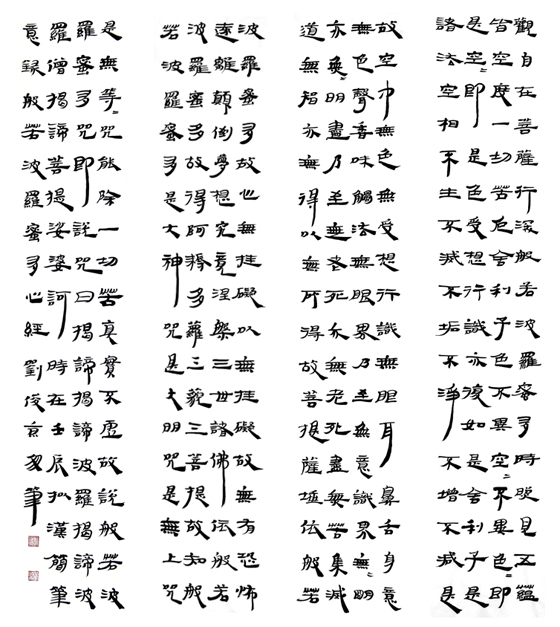 觀自在菩薩行深般若波羅蜜多時照見五蘊
皆空度一切苦厄舍利子色不異空〻不異色〻即
是空〻即是色受想行識亦復如是舍利子是
諸法空相不生不滅不垢不淨不增不減是
故空中無色無受想行識無眼耳鼻舌身意
無色聲香味觸法無眼界乃至無意識界無〻明
亦無〻明盡乃至無老死亦無老死盡無苦集滅
道無智亦無得以無所得故菩提薩埵依般若
波羅蜜多故心無挂礙以無挂礙故無有恐怖
遠離顛倒夢想究竟涅槃三世諸佛依般若
波羅蜜多故得阿耨多羅三藐三菩提故知般
若波羅蜜多是大神咒是大明咒是無上咒
是無等〻咒能除一切苦真實不虛故說般若波
羅蜜多咒即說咒曰揭諦揭諦波羅揭諦波
羅僧揭諦菩提娑婆訶時在壬辰拟漢簡筆
意錄般若波羅蜜多心經劉俊京筆